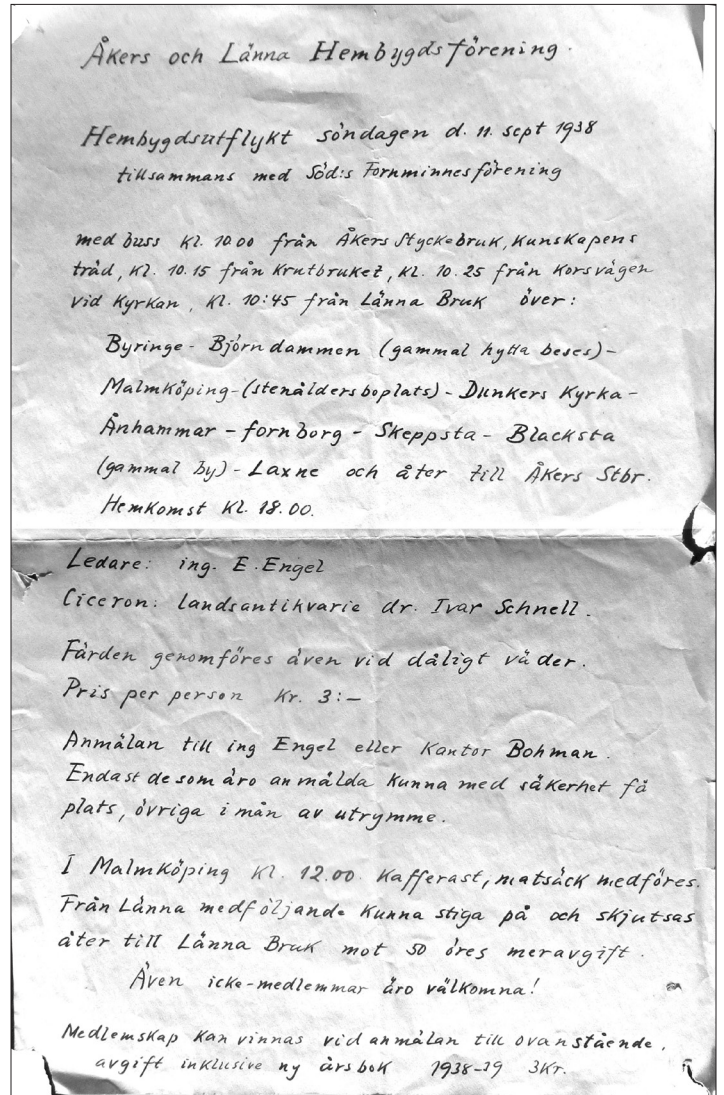 Åkers och Länna Hembygdsförening.
Hembygdsutflykt söndagen d. 11. sept 1938
tillsammans med Söd:s Fornminnesförening
med buss kl. 10.00 från Åkers Styckebruk, kunskapens
träd, kl. 10.15 från Krutbruket, kl. 10.25 från korsvägen
vid kyrkan, kl. 10:45 från Länna Bruk över:
Byringe - Björndammen (gammal hytta beses) -
Malmköping - (stenåldersboplats) - Dunkers Kyrka -
Ånhammar - fornborg - Skeppsta - Blacksta
(gammal by) - Laxne och åter till Åkers Stbr.
Hemkomst kl. 18.00.
Ledare: ing. E. Engel
Ciceron: landsantikvarie dr. Ivar Schnell.
Färden genomföres även vid dåligt väder.
Pris per person kr. 3:-
Anmälan till ing Engel eller Kantor Bohman.
Endast de som äro anmälda kunna med säkerhet få
plats, övriga i mån av utrymme.
I Malmköping kl. 12.00. Kafferast, matsäck medföres.
Från Länna medföljande kunna stiga på och skjutsas
åter till Länna Bruk mot 50 öres meravgift.
Även icke-medlemmar äro välkomna!
Medlemskap kan vinnas vid anmälan till ovanstående,
avgift inklusive ny årsbok 1938-39 3kr.